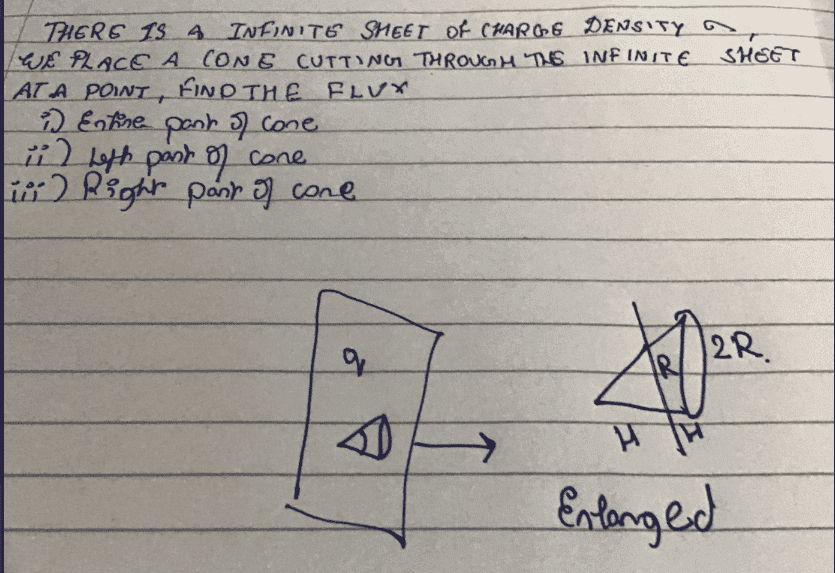 THERE IS A INFINITE SHEET OF CHARGE DENSITY σ,
WE PLACE A CONE CUTTING THROUGH THE INFINITE SHEET
AT A POINT, FIND THE FLUX
i) Entire part of cone
ii) Left part of cone
iii) Right part of cone
σ
R
2R.
H
H
Enlarged